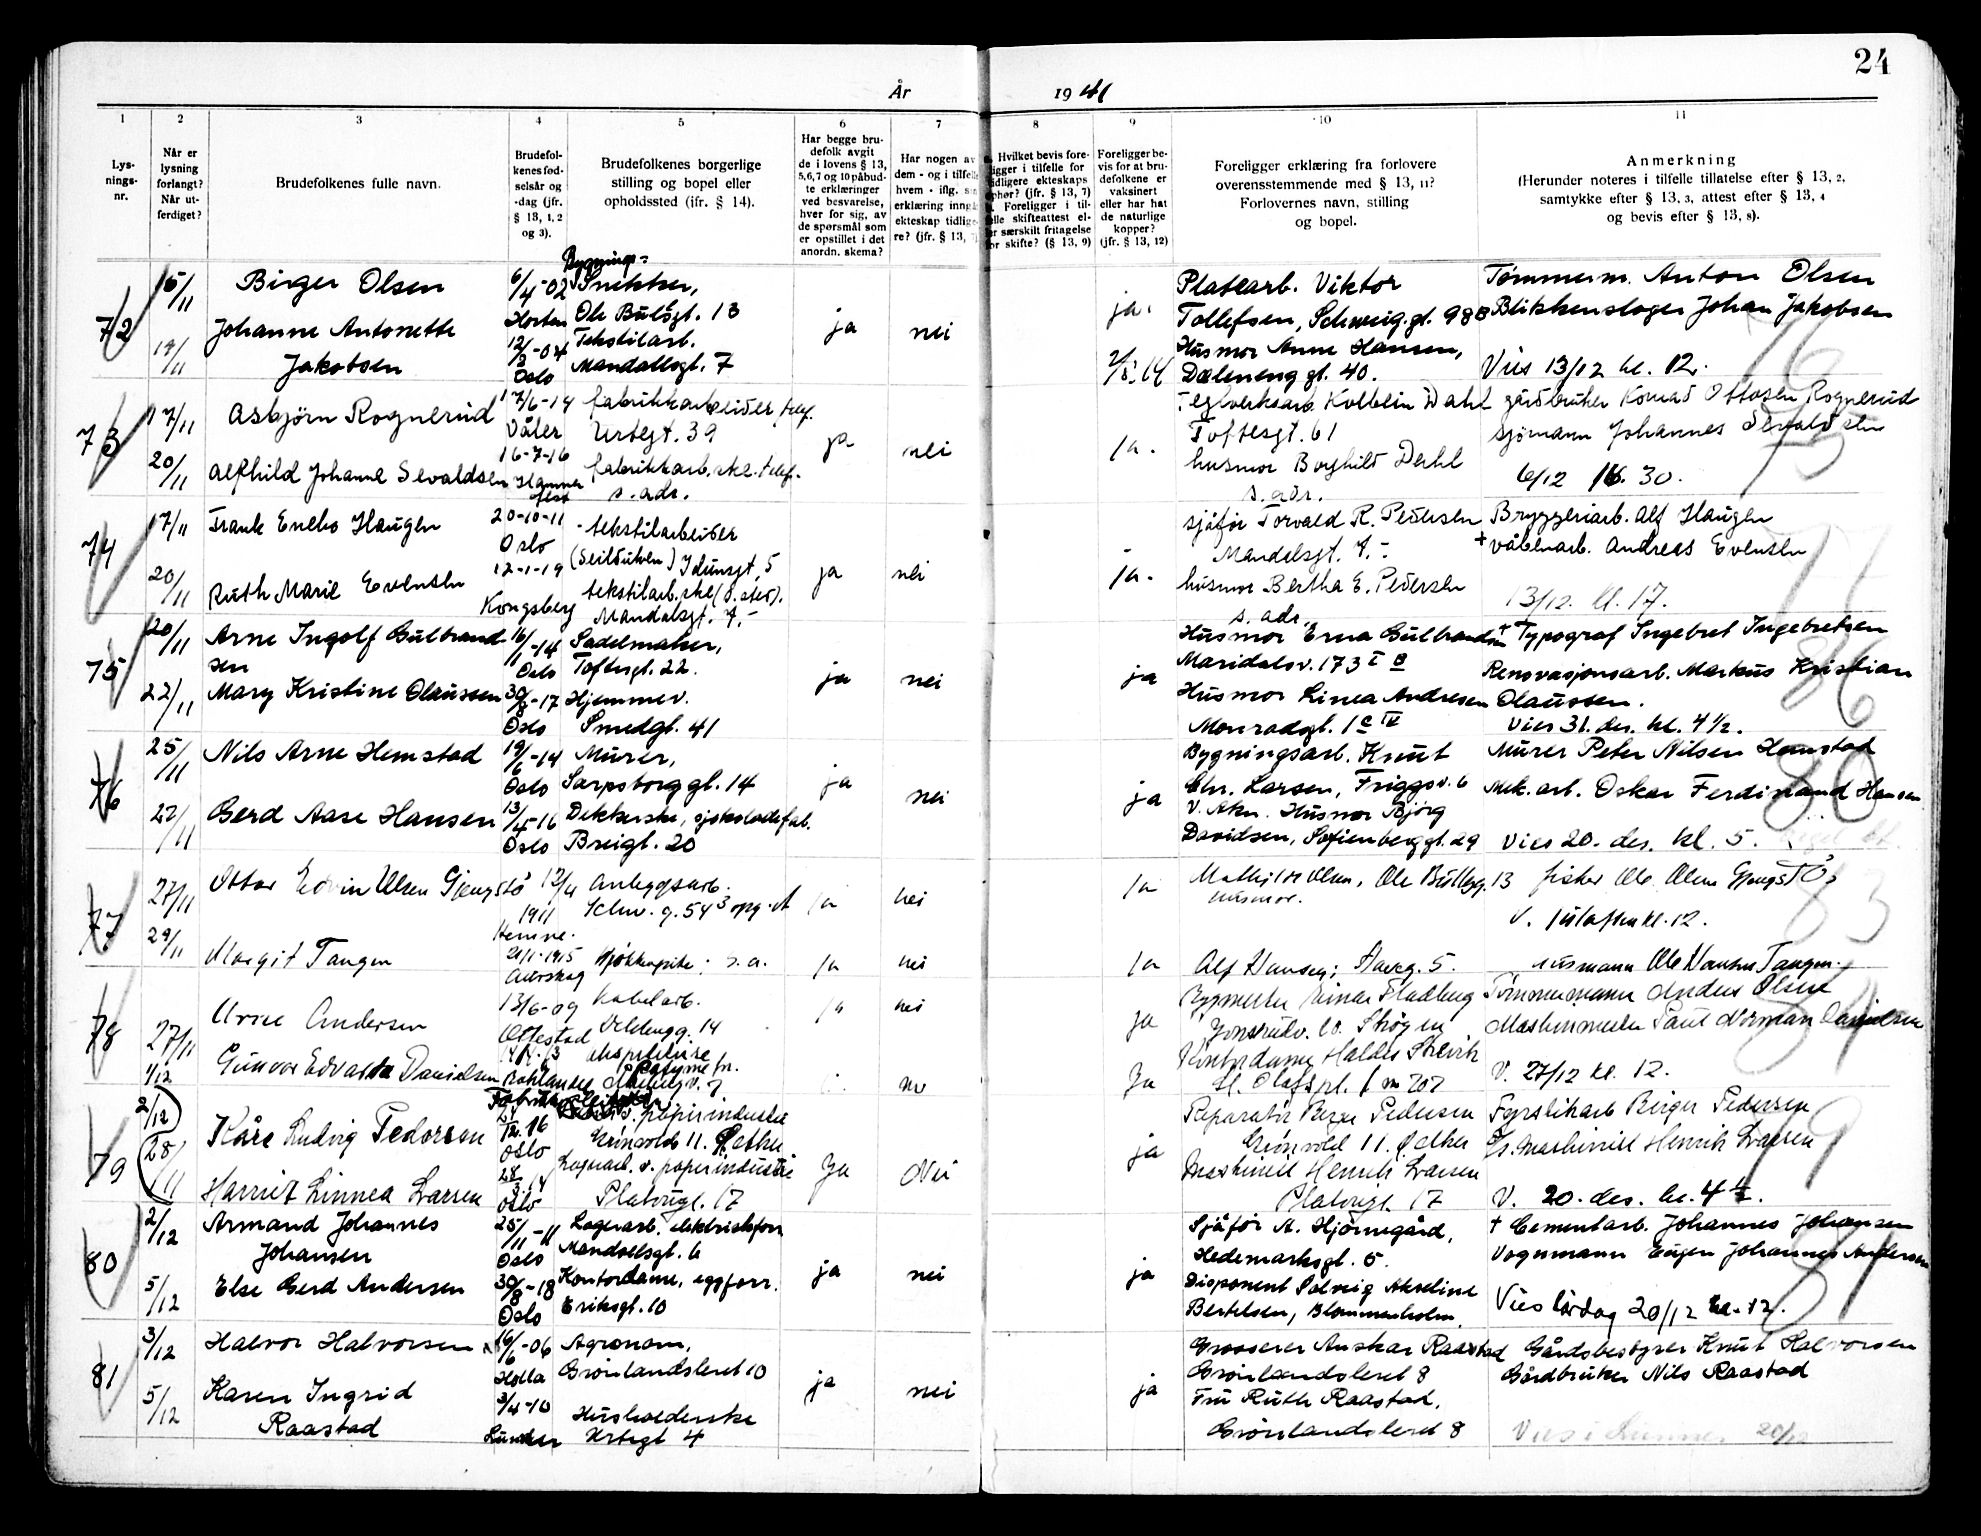 24
År 1941
1 2 3 4 5 6 7 8 9 10 11
Lysnings-nr.
Når er lysning forlangt? Når utferdiget?
Brudefolkenes fulle navn.
Brudefolkenes fødselsår og -dag (jfr. § 13, 1, 2 og 3).
Brudefolkenes borgerlige stilling og bopel eller opholdssted (ifr. § 14).
Har begge brudefolk avgit de i lovens § 13, 5, 6, 7 og 10 påbudte erklæringer ved besvarelse, hver for sig, av de spørsmål som er opstillet i det anordn. skema?
Har nogen av dem - og i tilfelle hvem - iflg. sin erklæring inngått ekteskap tidligere? (jfr. § 13,
Hvilket bevis foreligger i tilfelle for tidligere ekteskaps ophør? (jfr. § 13, 7) Foreligger i tilfelle skifteattest eller særskilt fritagelse for skifte? (§ 13, 9)
Foreligger bevis for at brudefolkene er vaksinert eller har hat de naturlige kopper? (jfr. § 13, 12)
Foreligger erklæring fra forlovere overensstemmende med § 13, 11? Forlovernes navn, stilling og bopel.
Anmerkning (Herunder noteres i tilfelle tillatelse efter § 13, 2, samtykke efter § 13, 3, attest efter § 13, 4 og bevis efter § 13, 8).
72 15/11 Birger Olsen 6/4-02 Horten Bygnings-Snekker, Ole Bullsgt. 13 ja nei ja. Platearb. Viktor Tollefsen, Schweig.gt. 98B Tømmerm. Anton Olsen
19/11 Johanne Antonette Jakobsen 12/3-04 Oslo Tekstilarb. Mandallsgt. 7 Husmor Anne Hansen, Dælenenggt. 40. Blikkenslager Johan Jakobsen
Vies 13/12 kl. 12.
76
73 17/11 Asbjørn Rognerud 17/6-14 Våler fabrikkarbeider telef. Urtegt. 39 ja nei ja. Kolbein Dahl Toftesgt. 61 gårdbruker Konrad Ottosen Rognerud
20/11 Alfhild Johanne Sevaldsen 16-7-16 Hammerfest fabrikkarb.ske. telef. s. adr. husmor Borghild Dahl s. adr. sjømann Johannes Sevaldsen
6/12 16.30.
75
74 17/11 Frank Enebo Haugen 20-10-11 Oslo tekstilarbeider (Seilduken) Idunsgt. 5 ja nei ja. sjåfør Torvald R. Pedersen Mandalsgt. 7.- Bryggeriarb. Alf Haugen
20/11 Ruth Marie Evensen 12-1-19 Kongsberg tekstilarb.ske Mandalsgt. 7.- husmor Bertha E. Pedersen s. adr. + våbenarb. Andreas Evensen
13/12. kl. 17.
77
75 20/11 Arne Ingolf Gulbrandsen 16/11-14 Oslo Sadelmaker, Toftesgt. 22. ja nei ja Husmor Erna Gulbrandsen Maridalsv. 173 I o + Typograf Ingebret Ingebretsen
22/11 Mary Kristine Olaussen 30/8-17 Oslo Hjemmev. Smedgt. 41 Husmor Linea Andresen Monradsgt. 1c IV Renovasjonsarb. Markus Kristian Olaussen.
Vies 31. des. kl. 4½.
86
76 25/11 Nils Arne Hemstad 19/6-14 Oslo Murer, Sarpsborggt. 14 ja nei ja Bygningsarb. Knut Chr. Larsen, Friggsv. 6 V. Aker. Murer Peter Nilsen Hemstad
27/11 Gerd Aase Hansen 13/4-16 Oslo Dekkerske, sjokoladefab. Breigt. 20 Husmor Bjørg Davidsen, Sofienberggt. 29 Mek. arb. Oskar Ferdinand Hansen
Vies 20. des. kl. 5.
80
77 27/11 Ottar Edvin Olsen Gjengstø 12/4 1911 Hemne. Anleggsarb. Schw. g. 54 ja nei ja Olsen, Ole Bullsg. 13 husmor. fisker Ole Olsen Gjengstø
V. juleaften kl. 12.
29/11 Margit Tangen 21/1-1915 Aurskog Kjøkkenpike; s. a. ja nei ja Alf Hansen; 5. Ole Tangen.
83
78 27/11 Arne Andersen 13/6-09 Ottestad Kabelarb. 14 ja nei ja Byggmester Einar Fladberg Tømmermann Anders Olsen
1/12 Gunvor Edvarda Danielsen nei Ja Kontordame St. Olafspl. 1 m 202 Maskinmester Paul Norman Danielsen
V. 27/12 kl. 12.
84
79 2/12 28/11 Kåre Ludvig Pedersen 12.16 Oslo papirindustri Grünvold 11. Ja Nei ja Reparatør Pedersen Grünvold 11. Fyrstikarb Birger Pedersen
Harriet Linnea Larsen Oslo Lagerarb. v. papirindustri Platougt. 17 Maskinist Henrik Larsen Platougt. 17 Maskinist Henrik Larsen
V. 20. des. kl. 4½.
79
80 2/12 Armand Johannes Johansen 25/11-11 Oslo Lagerarb. elektriskforr. Mandallsgt. 6 ja nei ja Sjåfør A. Hjørnegård, Hedemarksgt. 5. + Cementarb. Johannes Johansen
5/12 Else Gerd Andersen 30/8-18 Oslo Kontordame, eggforr. Eriksgt. 10 Disponent Solveig Akseline Bertelsen, Blommenholm. Vognmann Eugen Johannes Andersen
Vies lørdag 20/12 kl. 12.
81
81 3/12 Halvor Halvorsen 16/6-06 Holla Agronom, Grønlandsleret 10 ja nei ja Grosserer Anskar Raastad Grønlandsleret 8 Gårdsbestyrer Knut Halvorsen
5/12 Karen Ingrid Raastad 3/4-10 Lunner Husholderske Urtegt 4 Fru Ruth Raastad, Grønlandsleret 8 Gårdbruker Nils Raastad
Vies i Lunner 20/12